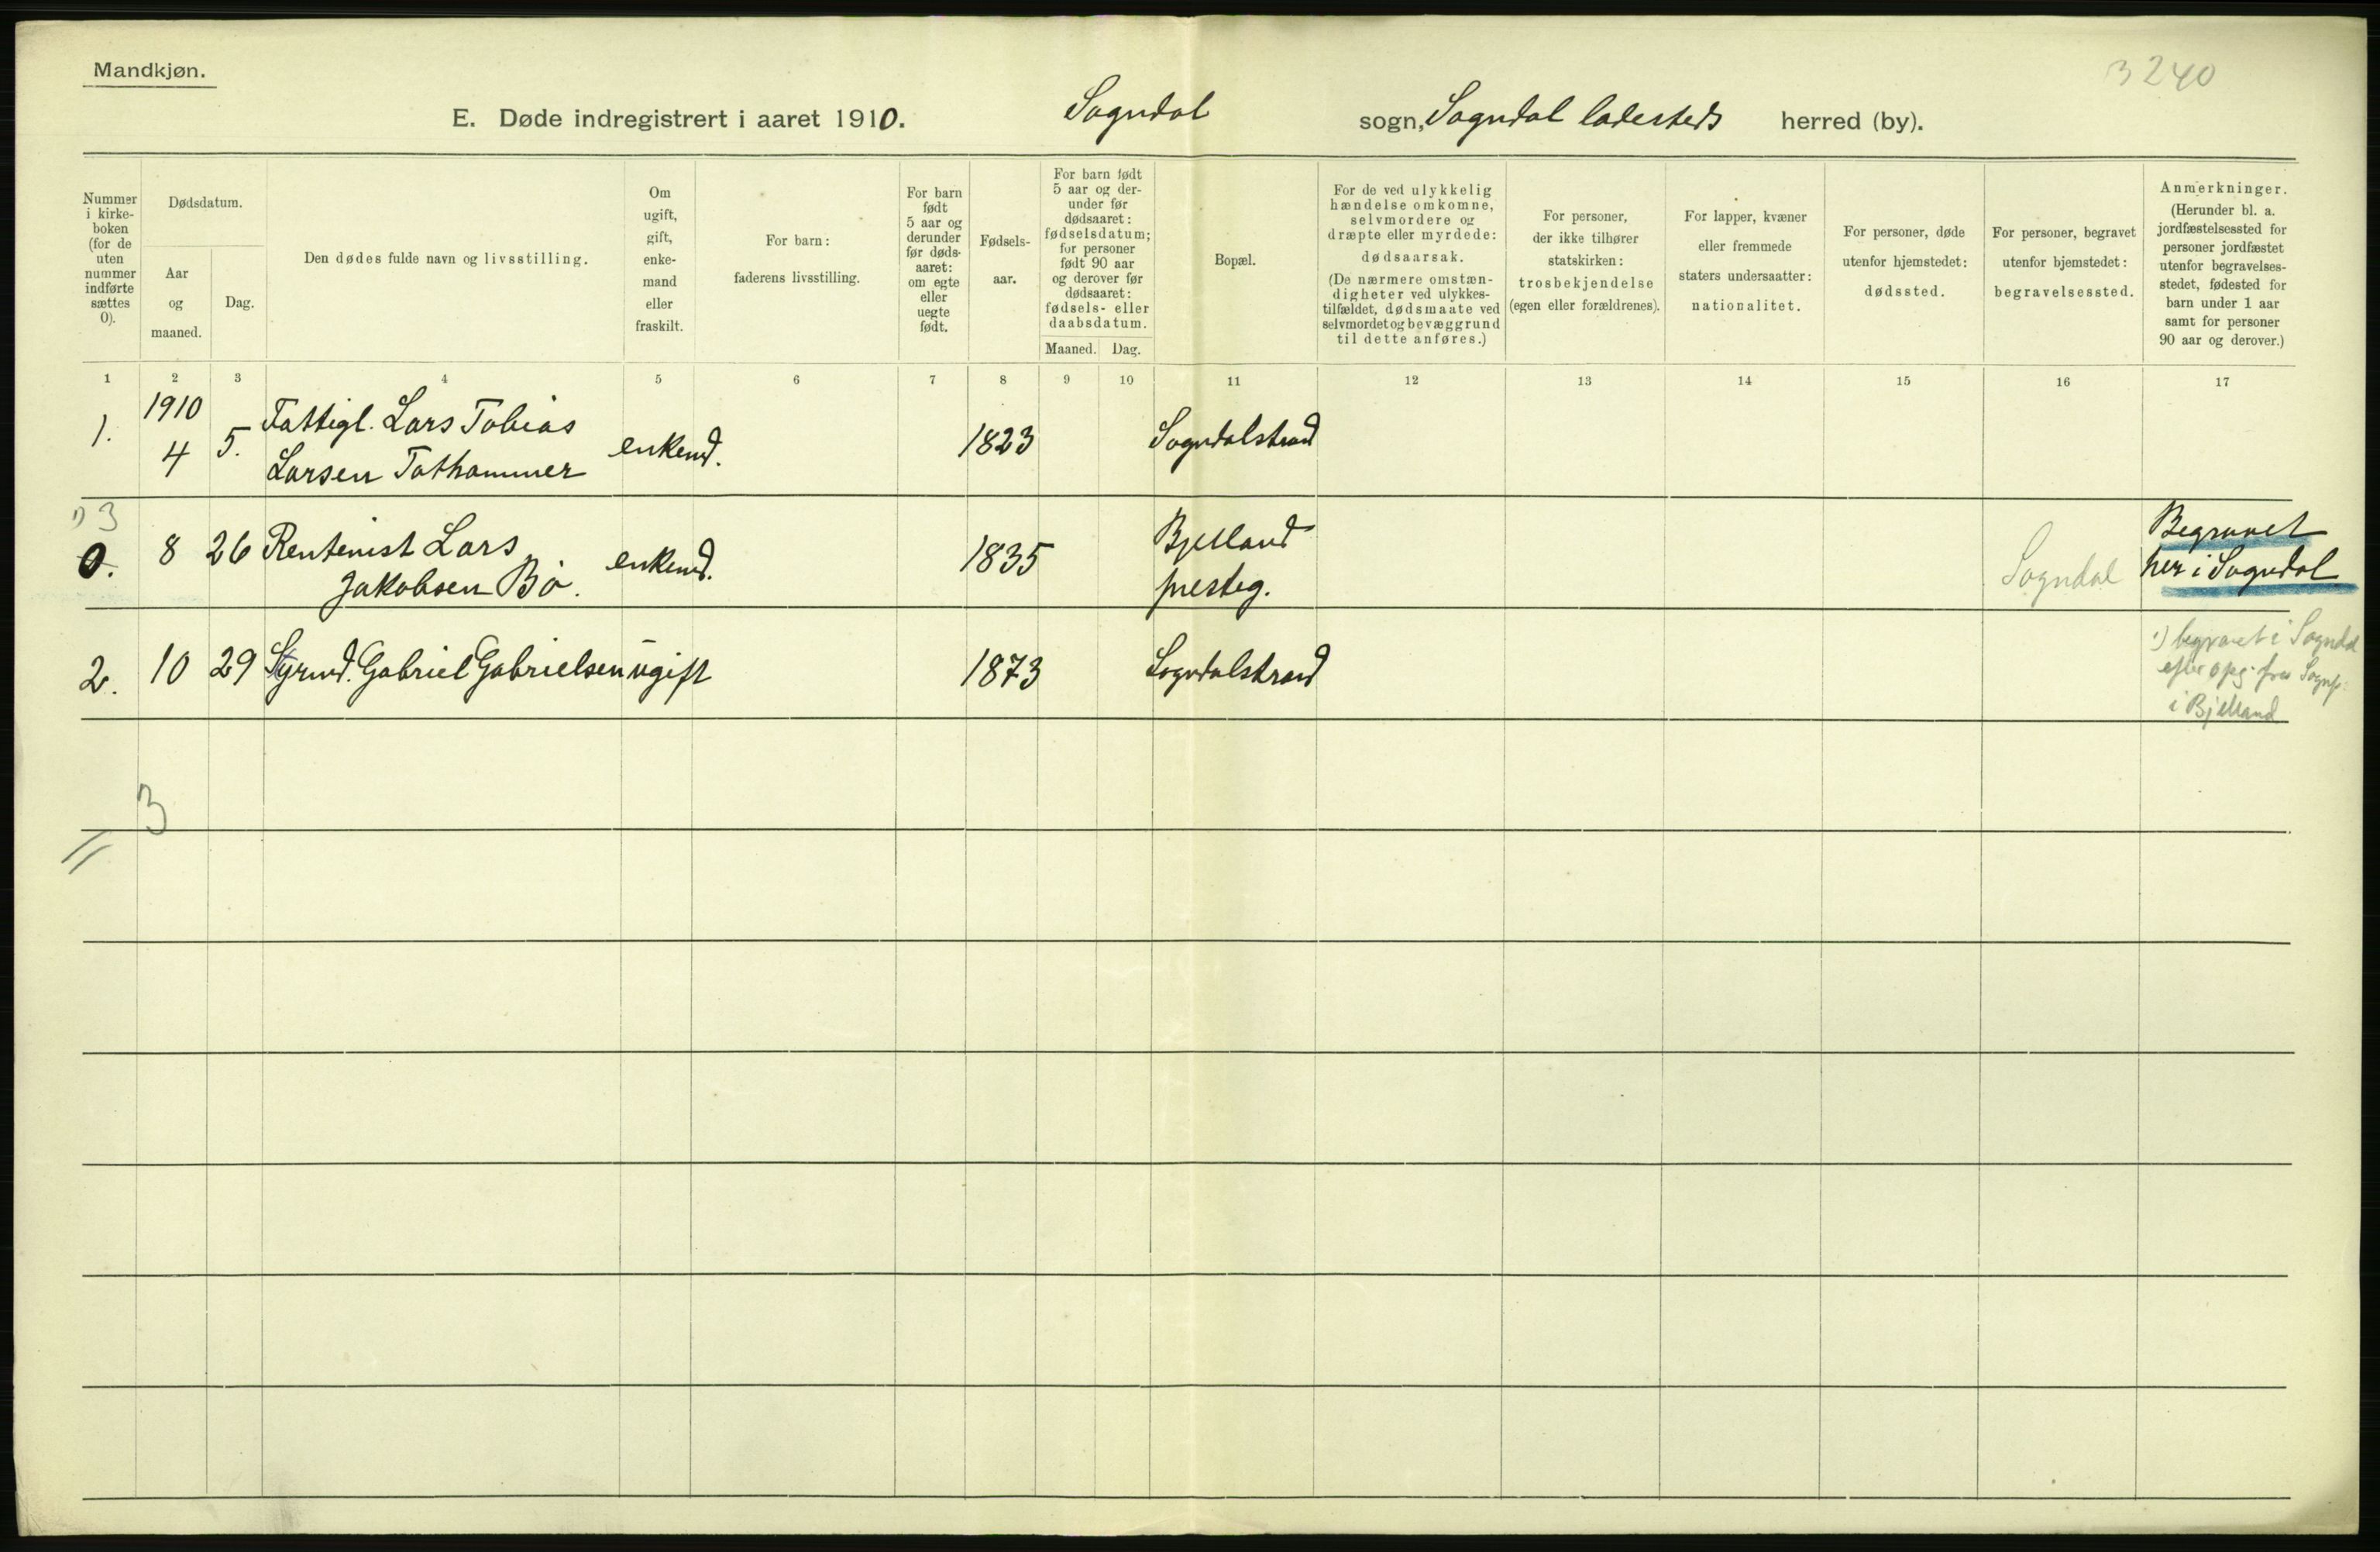 Mandkjøn.
3240
E. Døde indregistrert i aaret 1910. Sogndal sogn, Sogndal ladesteds herred (by).
Nummer i kirke-boken (for de uten nummer indførte sættes 0).
Dødsdatum.
Aar og maaned.
Dag.
Den dødes fulde navn og livsstilling.
Om ugift, gift, enke-mand eller fraskilt.
For barn: faderens livsstilling.
For barn født 5 aar og derunder før døds-aaret: om egte eller uegte født.
Fødsels-aar.
For barn født 5 aar og der-under før dødsaaret: fødselsdatum; for personer født 90 aar og derover før dødsaaret: fødsels- eller daabsdatum.
Maaned. Dag.
Bopæl.
For de ved ulykkelig hændelse omkomne, selvmordere og dræpte eller myrdede: dødsaarsak.
(De nærmere omstæn-digheter ved ulykkes-tilfældet, dødsmaate ved selvmordet og bevæggrund til dette anføres.)
For personer, der ikke tilhører statskirken: trosbekjendelse (egen eller forældrenes).
For lapper, kvæner eller fremmede staters undersaatter: nationalitet.
For personer, døde utenfor hjemstedet: dødssted.
For personer, begravet utenfor hjemstedet: begravelsessted.
Anmerkninger.
(Herunder bl. a. jordfæstelsessted for personer jordfæstet utenfor begravelses-stedet, fødested for barn under 1 aar samt for personer 90 aar og derover.)
1 2 3 4 5 6 7 8 9 10 11 12 13 14 15 16 17
1910
1. 4 5. Fattigl. Lars Tobias enkemd. 1823 Sogndalstrand
Larsen Tothammer
1) 3
0. 8 26 Rentenist Lars enkemd. 1835 Bjelland Sogndal Begravet
Jakobsen Bö. presteg. her i Sogndal
2. 10 29 Styrmd. Gabriel Gabrielsen ugift 1873 Sogndalstrand
1) begravet i Sogndal
efter opg. fra Sognep.
i Bjelland
3